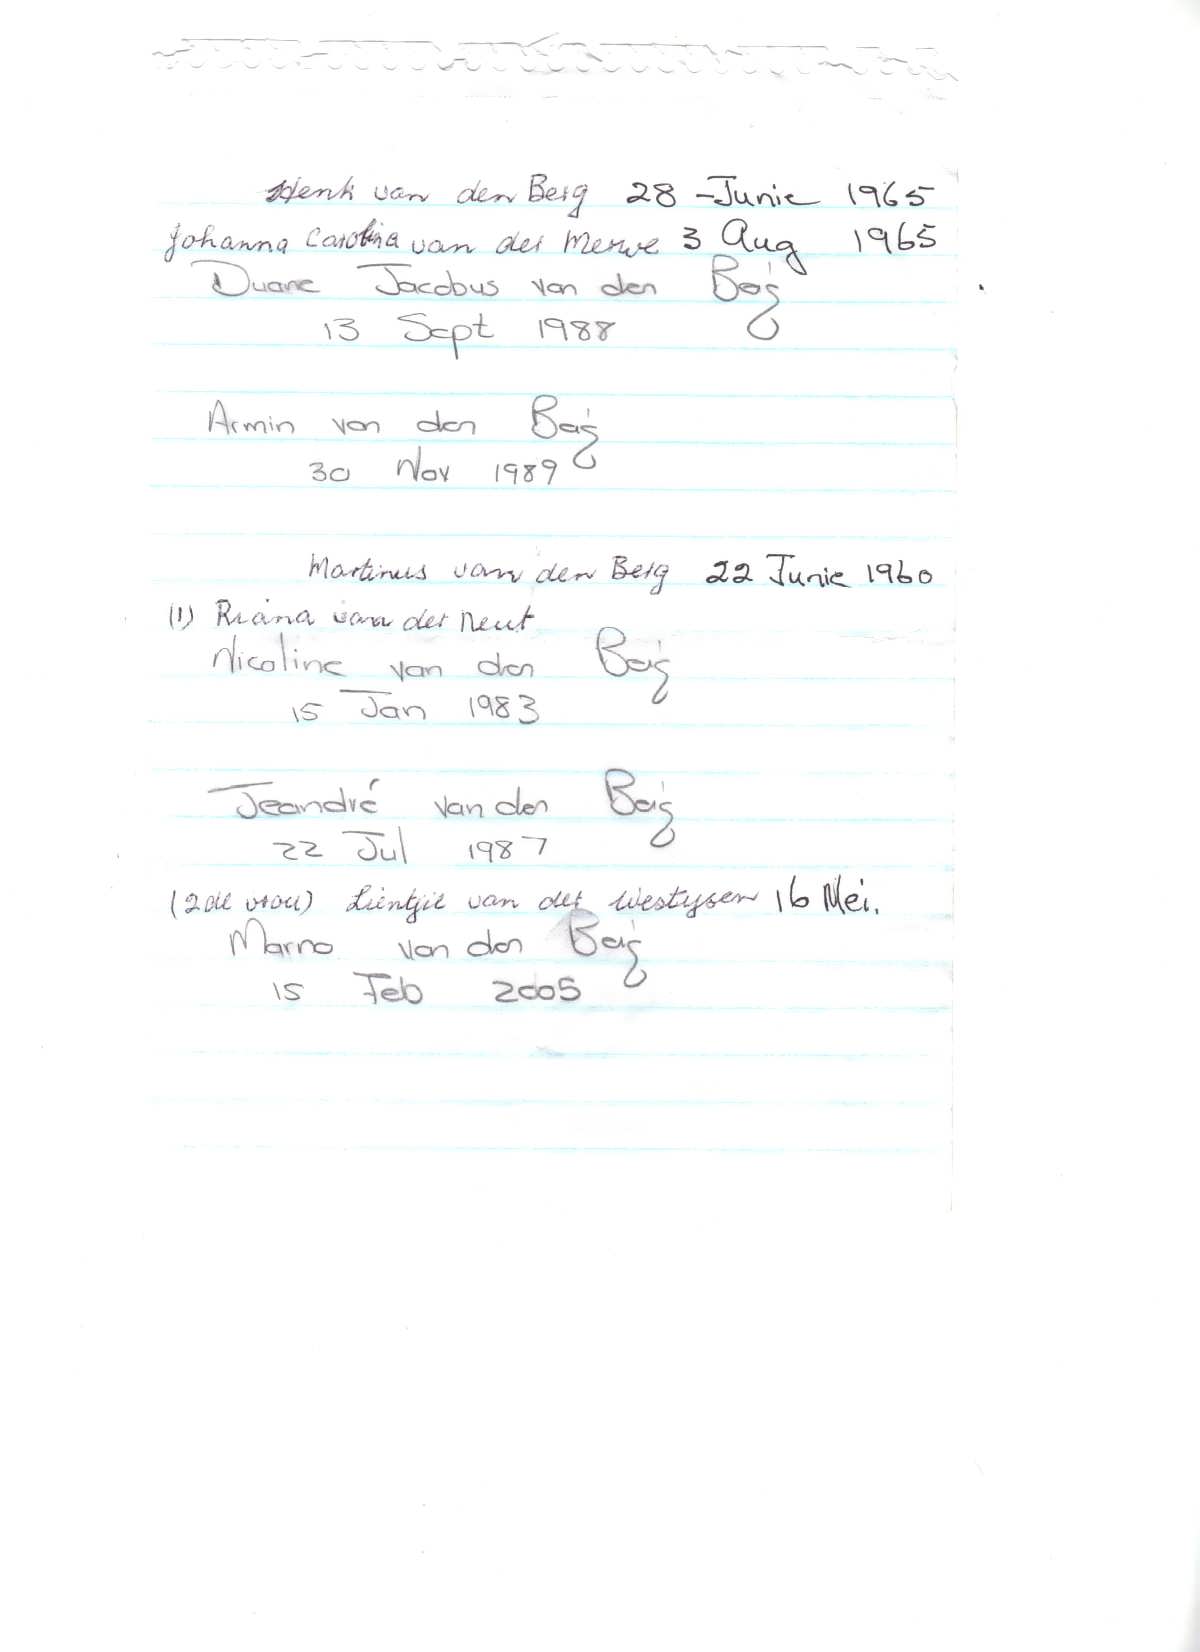 Henk van den Berg 28 - Junie 1965
Johanna Carolina van der Merwe 3 Aug 1965
Duane Jacobus van den Berg
13 Sept 1988
Armin van den Berg
30 Nov 1989
Martinus van den Berg 22 Junie 1960
(1) Riana van der Neut
Nicoline van den Berg
15 Jan 1983
Jeandré van den Berg
22 Jul 1987
(2de vrou) Lientjie van der Westhysen 16 Mei.
Marno van den Berg
15 Feb 2005